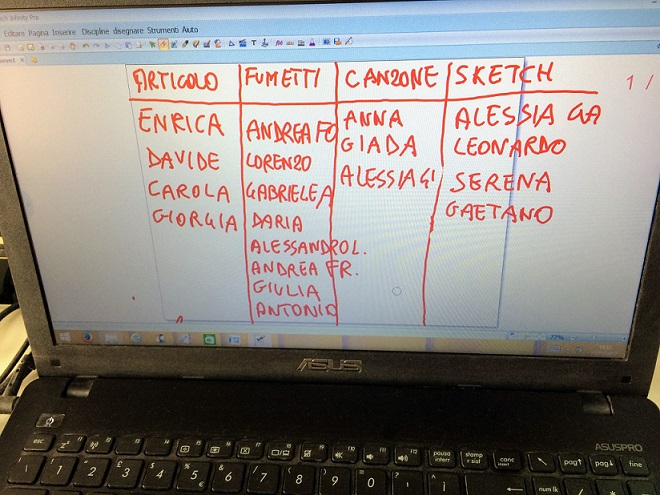 ch Infinity Pro
Editare Pagina Inserire Discipline disegnare Strumenti Aiuto
ARTICOLO FUMETTI CANZONE SKETCH
1 /
ENRICA ANDREA FO ANNA ALESSIA GA
DAVIDE LORENZO GIADA LEONARDO
CAROLA GABRIELE A ALESSIA GI SERENA
GIORGIA DARIA GAETANO
ALESSANDRO L.
ANDREA FR.
GIULIA
ANTONIO
ASUS
ASUSPRO
esc F1 F2 F3 F4 F5 F6 F7 F8 F9 F10 F11 F12 pausa interr stamp r sist canc pag↑ pag↓ fine
\ 1 2 £ 3 $ 4 % 5 € & 6 / 7 ( 8 ) 9 = 0 ? ' ^ ì num lk